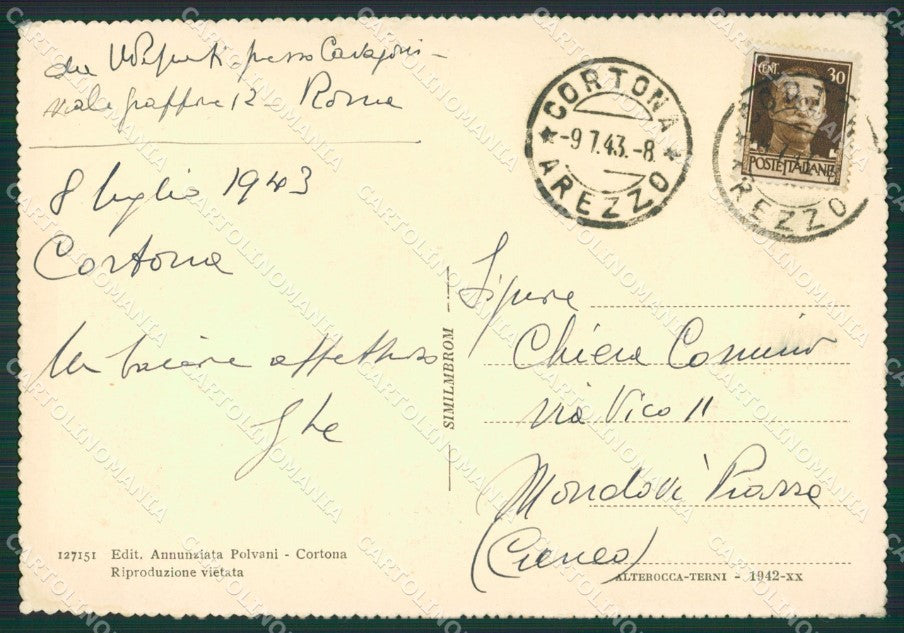 presso
viale 12 - Roma
8 luglio 1943
Cortona
Un bacione affettuoso
CORTONA
-9.7.43.-8
AREZZO
CENT. 30
POSTE ITALIANE
AREZZO
SIMILMBROM
Chiera Comino
Via Vico 11
Mondovì Piazza
(Cuneo)
127151 Edit. Annunziata Polvani - Cortona
Riproduzione vietata
ALTEROCCA-TERNI - 1942-XX
CARTOLINOMANIA